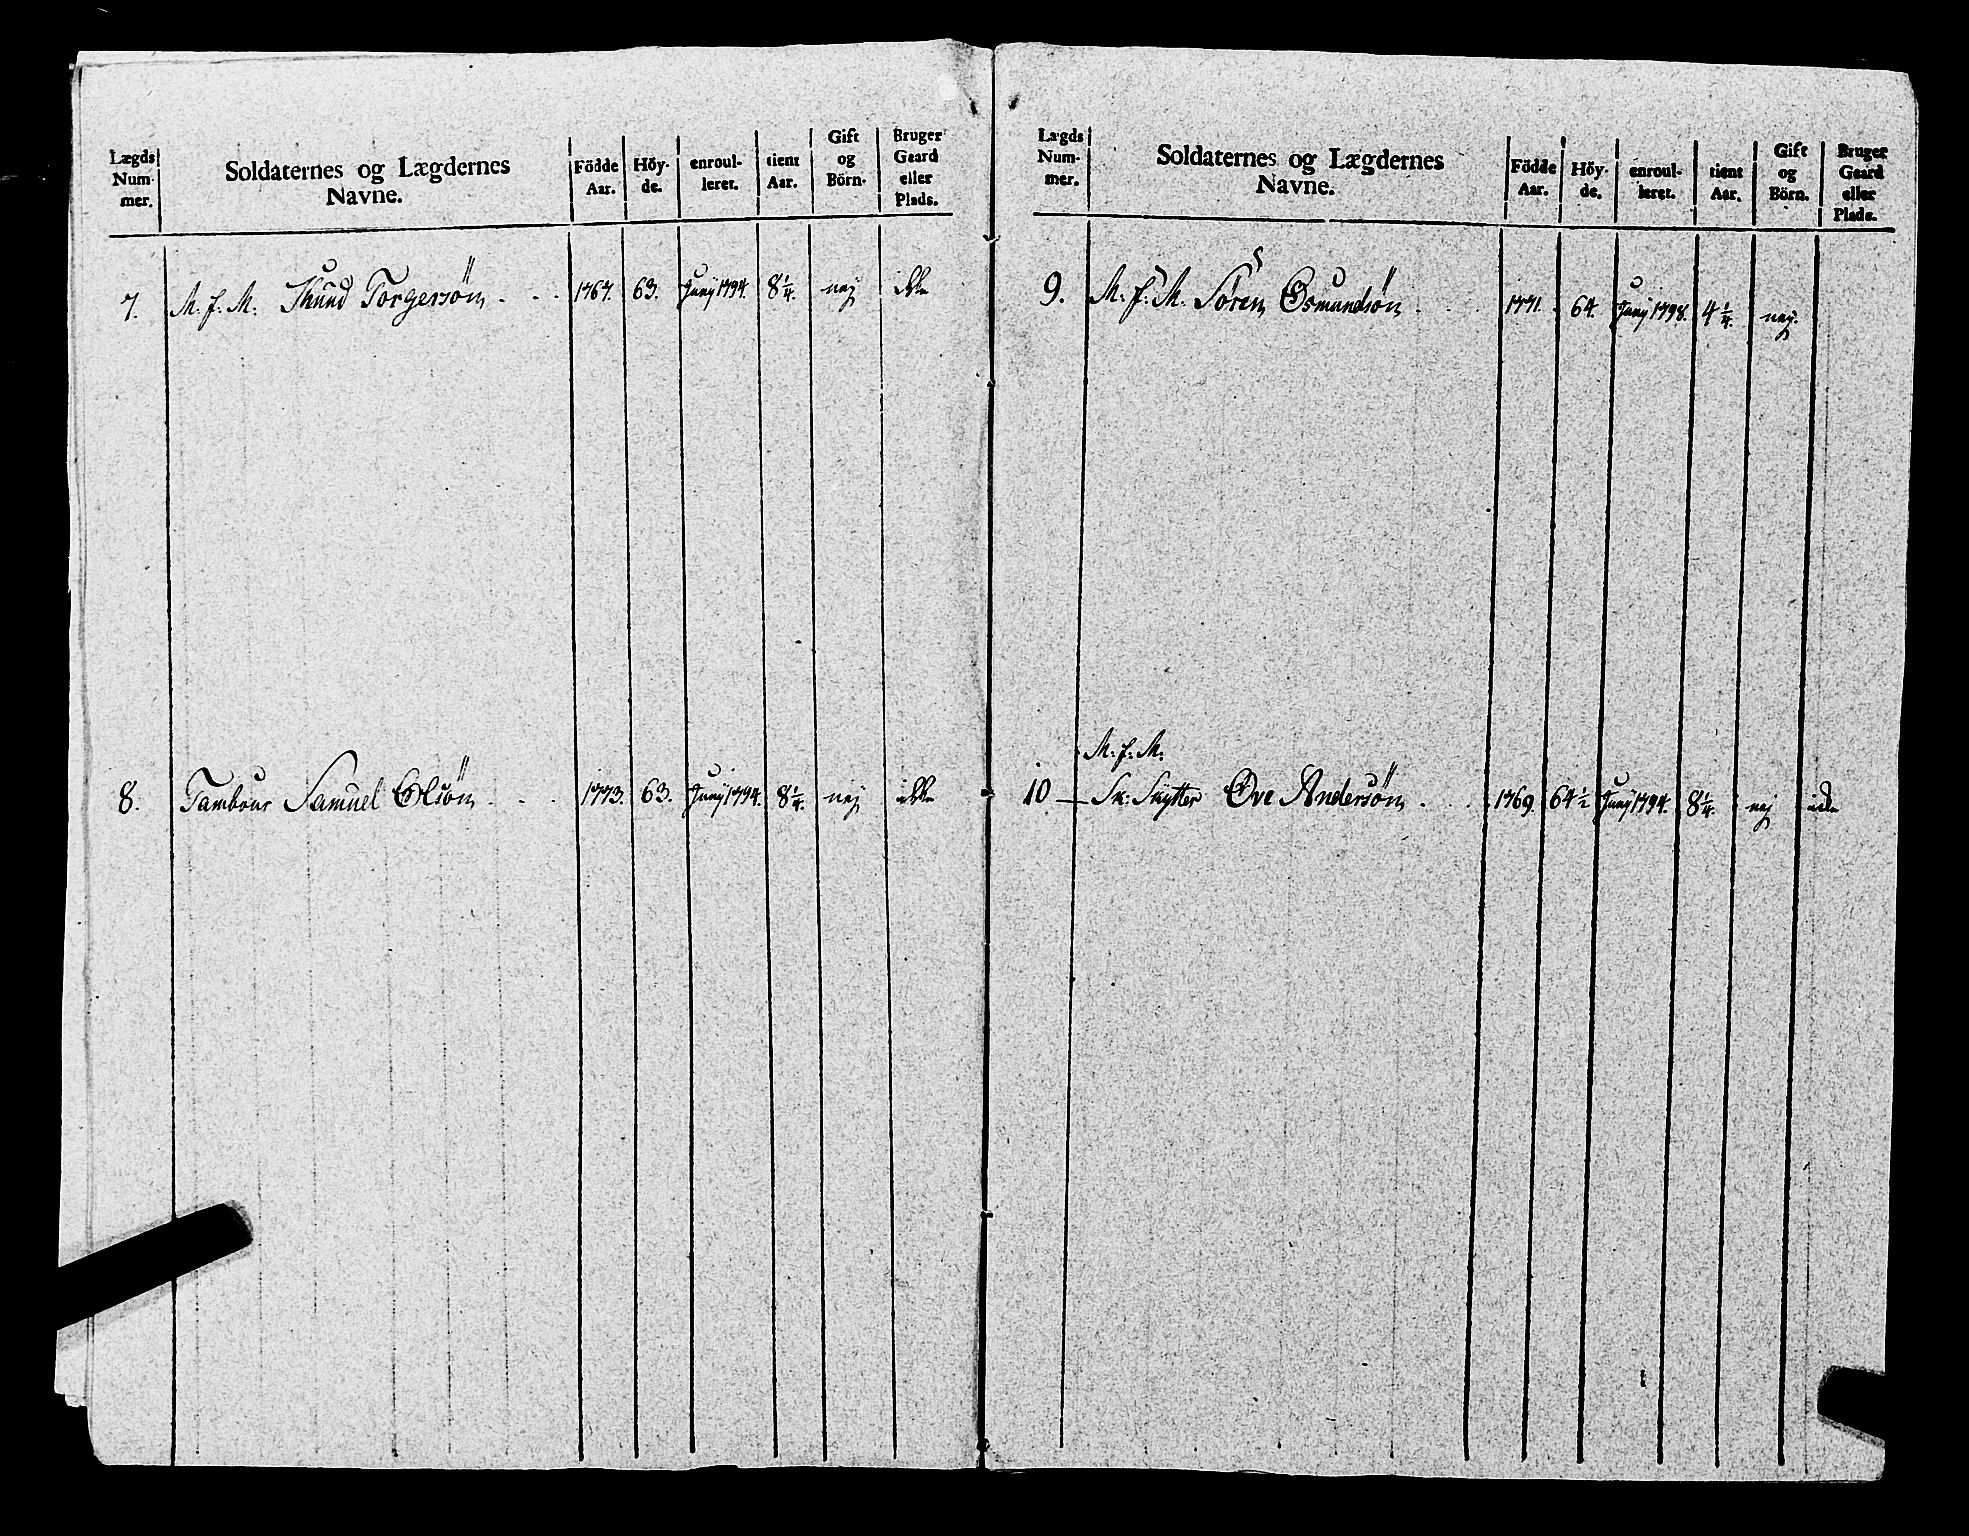 Lægds Num- mer. Soldaternes og Lægdernes Navne. Födde Aar. Höy- de. enroul- leret. tient Aar. Gift og Börn. Bruger Gaard eller Plads.
7. M. f. M. Knud Torgersön . . . 1767. 63. Junij 1794. 8 1/4. nej ikke
8. Tambour Samuel Olsön . . . 1773. 63. Junij 1794. 8 1/4. nej ikke
Lægds Num- mer. Soldaternes og Lægdernes Navne. Födde Aar. Höy- de. enroul- leret. tient Aar. Gift og Börn. Bruger Gaard eller Plads.
9. M. f. M. Sören Osmundsön . . . 1771. 64. Junij 1798. 4 1/4. nej.
M. f. M.
10 — Sk: Skytter Ove Andersön . . . 1769. 64 1/2 Junij 1794. 8 1/4. nej ikke